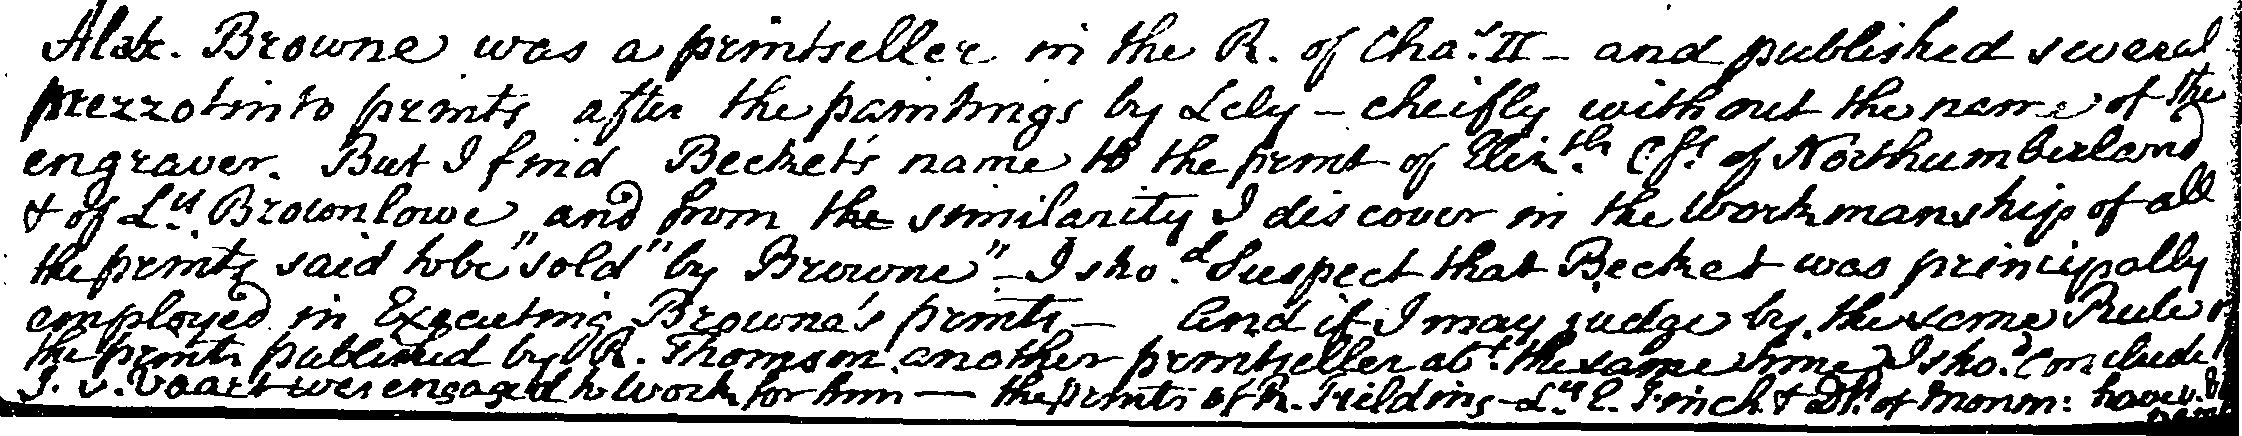 Alexr. Browne was a printseller in the R. of Chas. II - and published several
mezzotinto prints after the paintings by Lely - cheifly without the name of the
engraver. But I find Becket's name to the print of Elizth. Css. of Northumberland
& of Ly. Brownlowe, and from the similarity I discover in the workmanship of all
the prints said to be "sold" by Browne" - I shod. Suspect that Becket was principally
employed in Executing Browne's prints - And if I may judge by the same Rule
the prints published by R. Thomson another printseller abt. the same time, I shod. Conclude
J. v. Vaart was engaged to work for him - the prints of R. Fielding - Ly. E. Finch & Ds. of Monm: have v.